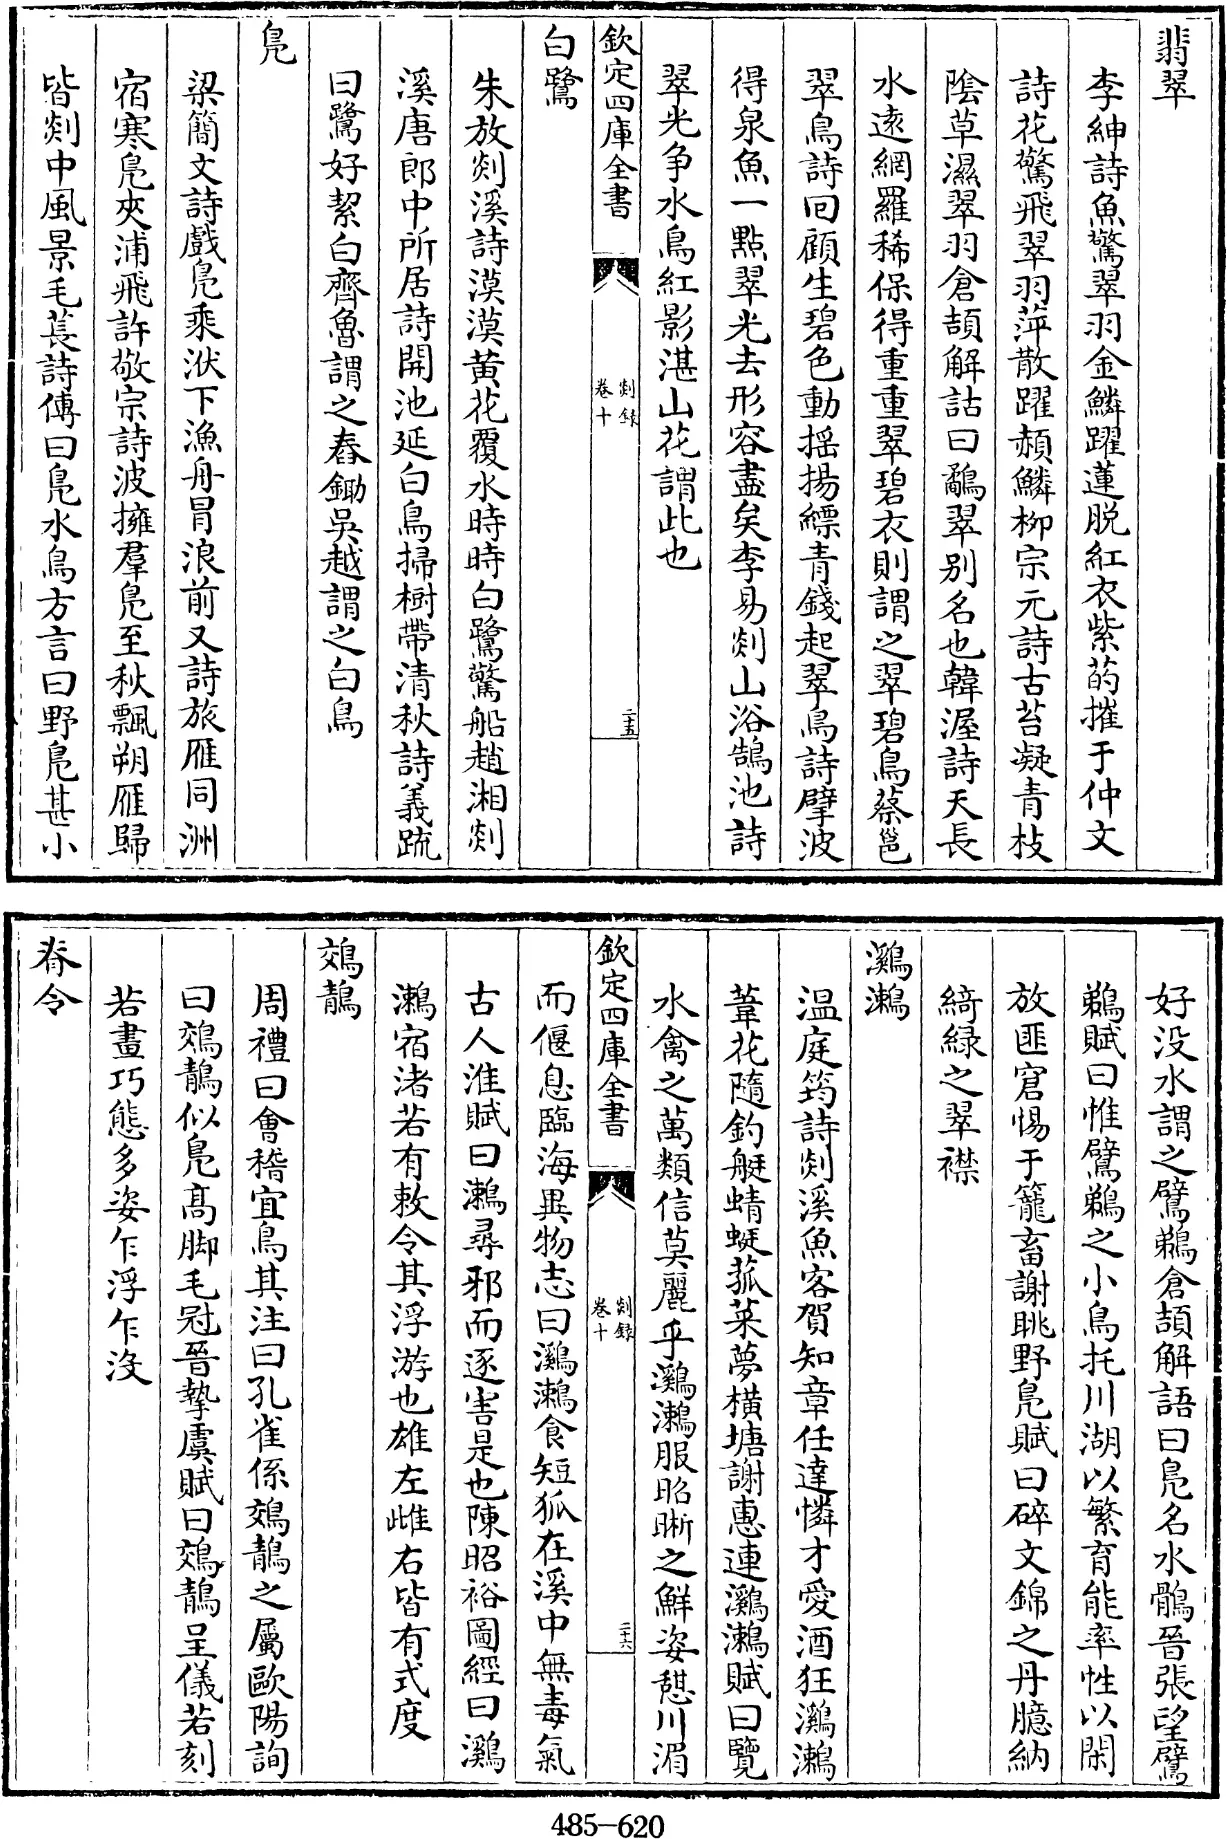 翡翠
李紳詩魚驚翠羽金鱗躍蓮脱紅衣紫菂摧于仲文
詩花驚飛翠羽萍散躍赬鱗柳宗元詩古苔凝青枝
陰草濕翠羽倉頡解詁曰鷸翠别名也韓渥詩天長
水逺網羅稀保得重重翠碧衣則謂之翠碧鳥蔡邕
翠鳥詩回顧生碧色動揺揚縹青錢起翠鳥詩擘波
得泉魚一㸃翠光去形容盡矣李易剡山浴鵠池詩
翠光争水鳥紅影湛山花謂此也
欽定四庫全書
剡録
卷十
二十五
白鷺
朱放剡溪詩漠漠黄花覆水時時白鷺驚船趙湘剡
溪唐郎中所居詩開池延白鳥掃樹帶清秋詩義疏
曰鷺好絜白齊魯謂之舂鋤吳越謂之白鳥
鳬
梁簡文詩戲鳬乘洑下漁舟冒浪前又詩旅雁同洲
宿寒鳬夾浦飛許敬宗詩波擁羣鳬至秋飄朔雁歸
皆剡中風景毛萇詩傳曰鳬水鳥方言曰野鳬甚小
好没水謂之鸊鵜倉頡解語曰鳬名水鶻晉張望鸊
鵜賦曰惟鸊鵜之小鳥托川湖以繁育能率性以閑
放匪窘惕于籠畜謝眺野鳬賦曰碎文錦之丹臆納
綺緑之翠襟
鸂鶒
温庭筠詩剡溪魚客賀知章任達憐才愛酒狂鸂鶒
葦花隨釣艇蜻蜓菰菜夢横塘謝恵連鸂鶒賦曰覽
水禽之萬類信莫麗乎鸂鶒服昭晰之鮮姿憇川湄
欽定四庫全書
剡録
卷十
二十六
而偃息臨海異物志曰鸂鶒食短狐在溪中無毒氣
古人淮賦曰鶒尋邪而逐害是也陳昭裕圖經曰鸂
鶒宿渚若有敕令其浮游也雄左雌右皆有式度
鵁鶄
周禮曰㑹稽宜鳥其注曰孔雀係鵁鶄之屬歐陽詢
曰鵁鶄似鳬髙脚毛冠晉摯虞賦曰鵁鶄呈儀若刻
若畫巧態多姿乍浮乍沒
脊令
485-620